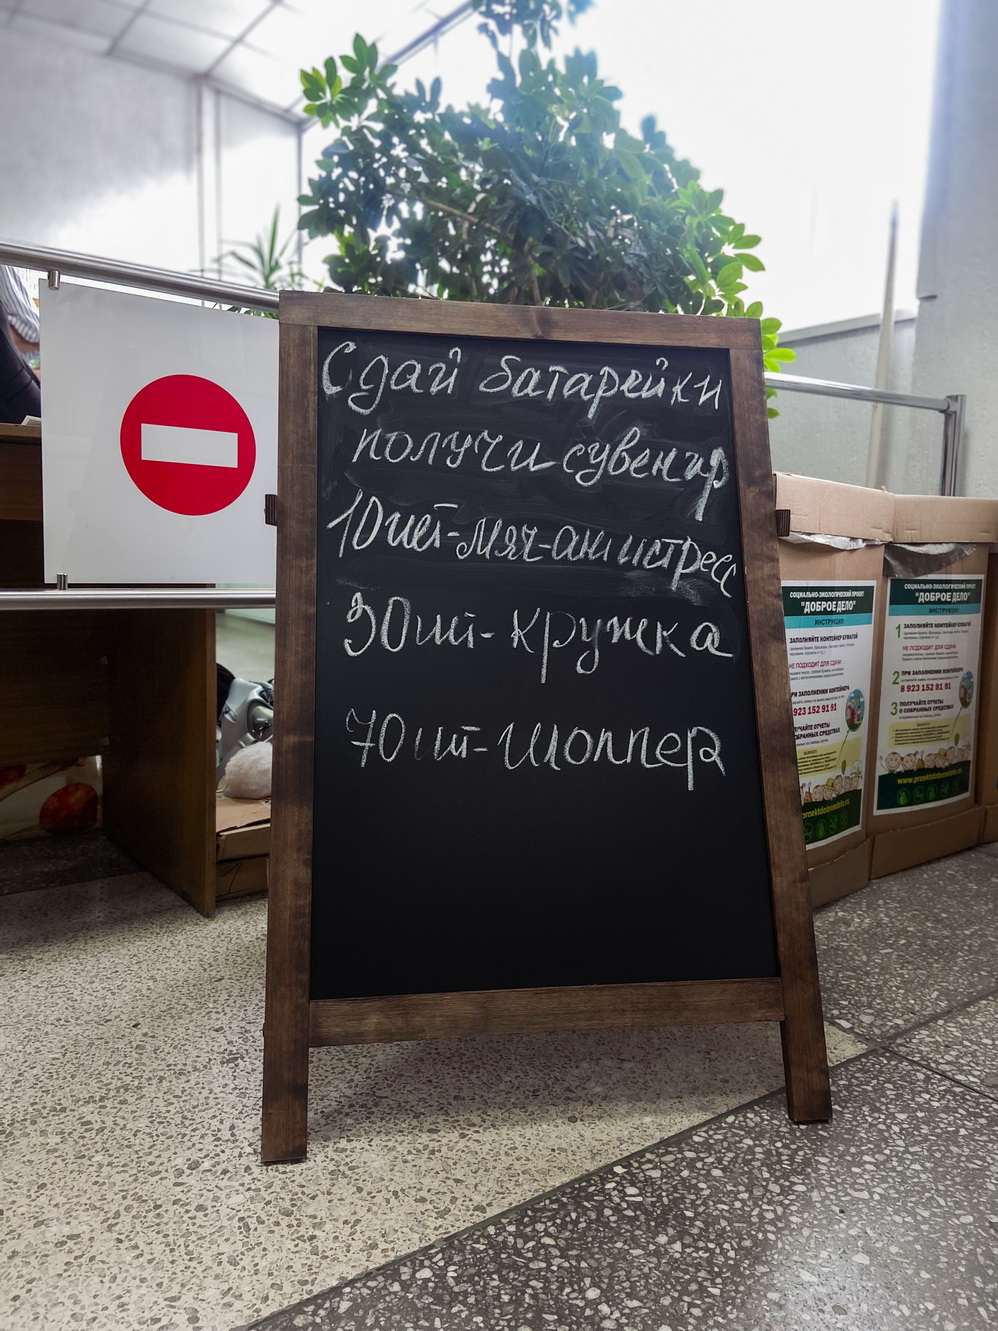 Сдай батарейки
получи сувенир
10шт-мяч-антистресс
30шт-кружка
70шт-шоппер
СОЦИАЛЬНО-ЭКОЛОГИЧЕСКИЙ ПРОЕКТ
"ДОБРОЕ ДЕЛО"
ИНСТРУКЦИЯ
ЗАПОЛНЯЙТЕ КОНТЕЙНЕР БУМАГОЙ
НЕ ПОДХОДИТ ДЛЯ СДАЧИ
ПРИ ЗАПОЛНЕНИИ КОНТЕЙНЕРА
8 923 152 81 91
ПОЛУЧАЙТЕ ОТЧЕТЫ
О СОБРАННЫХ СРЕДСТВАХ
СОЦИАЛЬНО-ЭКОЛОГИЧЕСКИЙ ПРОЕКТ
"ДОБРОЕ ДЕЛО"
ИНСТРУКЦИЯ
1 ЗАПОЛНЯЙТЕ КОНТЕЙНЕР БУМАГОЙ
НЕ ПОДХОДИТ ДЛЯ СДАЧИ
2 ПРИ ЗАПОЛНЕНИИ КОНТЕЙНЕРА
8 923 152 81 91
3 ПОЛУЧАЙТЕ ОТЧЕТЫ
О СОБРАННЫХ СРЕДСТВАХ
www.proektdobroedelo.ru